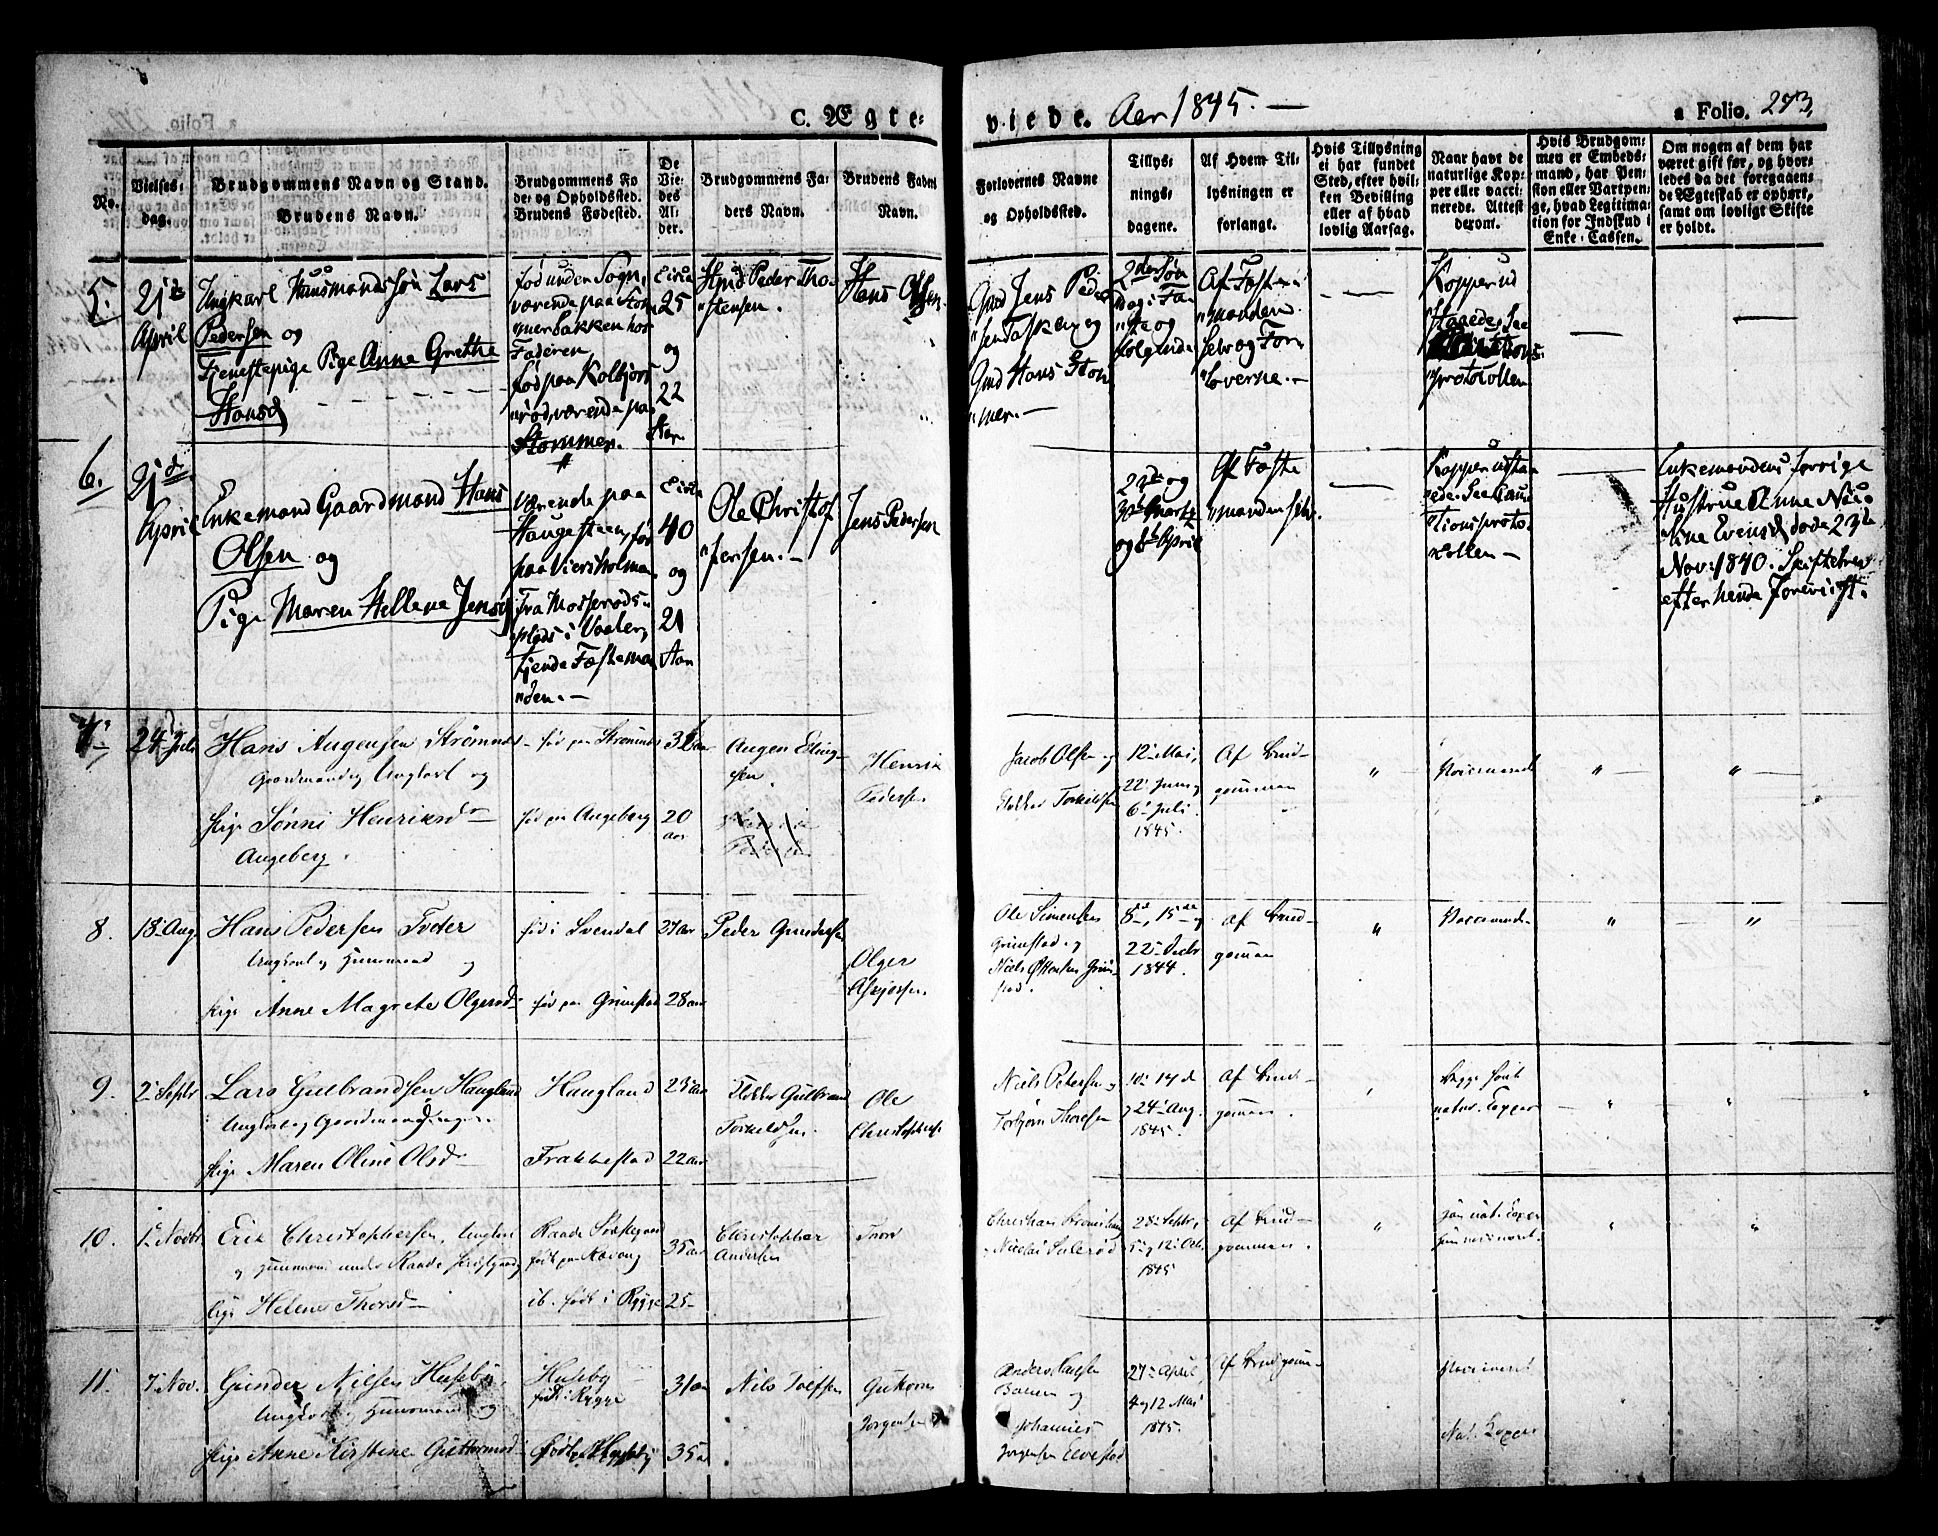 C. Ægte-
viede. Aar 1845. —
a Folio. 273.
No.
Vielses-
dag.
Brudgommens Navn og Stand.
Brudens Navn.
Brudgommens Fø
de- og Opholdssted.
Brudens Fødested.
De
Vie-
des
Al-
der.
Brudgommens Fa-
ders Navn.
Brudens Faders
Navn.
Forlovernes Navne
og Opholdssted.
Tillys-
nings-
dagene.
Af Hvem Til-
lysningen er
forlangt.
Hvis Tillysning
ei har fundet
Sted, efter hvil-
ken Bevilling
eller af hvad
lovlig Aarsag.
Naar havt de
naturlige Kop-
per eller vacci-
nerede. Attest
derom.
Hvis Brudgom-
men er Embeds-
mand, har Pen-
sion eller Vartpen-
ge, hvad Legitima-
tion for Indskud i
Enke-Cassen.
Om nogen af dem har
været gift før, og hvor-
ledes da det foregaaen-
de Ægteskab er ophørt,
samt om lovligt Skifte
er holdt.
5.
21de
April
Ungkarl Huusmandssøn Lars
Pedersen og
Tjenestepige Pige Anne Grethe
Hansd
fød under Sogn,
værende paa Stom
merbakken hos
Faderen
fød paa Kolbjørs
rød, værende paa
Stommer.
Circa
25
og
22
Aar.
Hmd Peder Tho-
stensen.
Hans Olsen.
Gmd Jens Peder
sen Asker og
Gmd Hans Stom
mer. —
2den Søn
dag i Fa
ste og
følgende
Af Fæste-
manden
selv og For-
loverne. —
Kopperud
staaede, See
protocollen
6.
21de
April
Enkemand Gaardmand Hans
Olsen og
Pige Maren Hellene Jensd
Værende paa
Haugesteen, fød
paa Viersholmen
Fra Mosserøds-
plads i Vaaler,
tjende Fæsteman
den. —
Circa
40
og
21
Aar
Ole Christof
fersen. —
Jens Pedersen
24de og
30te Marts
og 6te April
Af Fæste
manden selv.
Kopper udstaa
ede. See Comu
nionsproto
collen —
Enkemandens forrige
Hustrue Anne Nico
line Evensd døde 23de
Nov: 1840. Skiftebrev
efter hende forevist.
7.
24 Juli
Hans Augensen Strømnes
Gaardmand og Ungkarl og
Pige Sønni Henriksd
Augeberg.
fød paa Strømnes
fød paa Augeberg
32 aar
20
aar
Augen Eling-
sen.
Henrik
Pedersen
Jacob Olsen og
Torkildsen
12te Mai,
22 Juni og
6te Juli
1845.
Af Brud-
gommen
"
Vaccinered
"
"
8.
18 Aug.
Hans Pedersen Foder
Ungkarl og Huusmand og
Pige Anne Magrete Olgersd
fød i Svendal
fød paa Grimstad
27 aar
28 aar
Peder Gundersen
Olger
Asjersen
Ole Simensen
Grimstad og
Niels Ottersen Grim-
stad.
8de, 15de og
22 Decbr
1844.
Af Brud-
gommen
"
Vaccinered
"
"
9.
2 Septbr
Lars Gulbrandsen Haugland
Ungkarl og Gaardmand
Pige Maren Oline Olsd
Haugland
Frakkestad
23 aar
22 aar
Gulbrand
Torkildsen.
Ole
Christophersen
Niels Petersen og
Torbjørn Thoresen
10de 17de
og 24 Aug.
1845.
Af Brud-
gommen.
"
Begge havt
natur. Kopper
"
"
10.
1 Novbr
Erik Christophersen, Ungkarl
og Huusmand under Raade Præstgaard og
Pige Helene Thorsd
Raade Præstegaard
født paa Kavaag
ib. født i Rygge
35 aar
25
Christopher
Andersen
Thor
Christian
Nicolai Sulerød
28 Septbr,
5 og 12 Octb.
1845
Af Brud-
gommen.
"
han nat. Kopper
hun vaccineret.
"
"
11.
7 Nov.
Gunder Nilsen Husebÿ,
Ungkarl, Huusmand og
Pige Anne Kirstine Guttormsd
Huseby
født i Rygge
31 aar
35 a
Nils
Guttorm
Jorgensen
Anders
og
Johannes
Jorgensen
27 April,
4 og 12 Mai
1845.
Af Brudgom-
men.
Vaccineret
Nat. Kopper